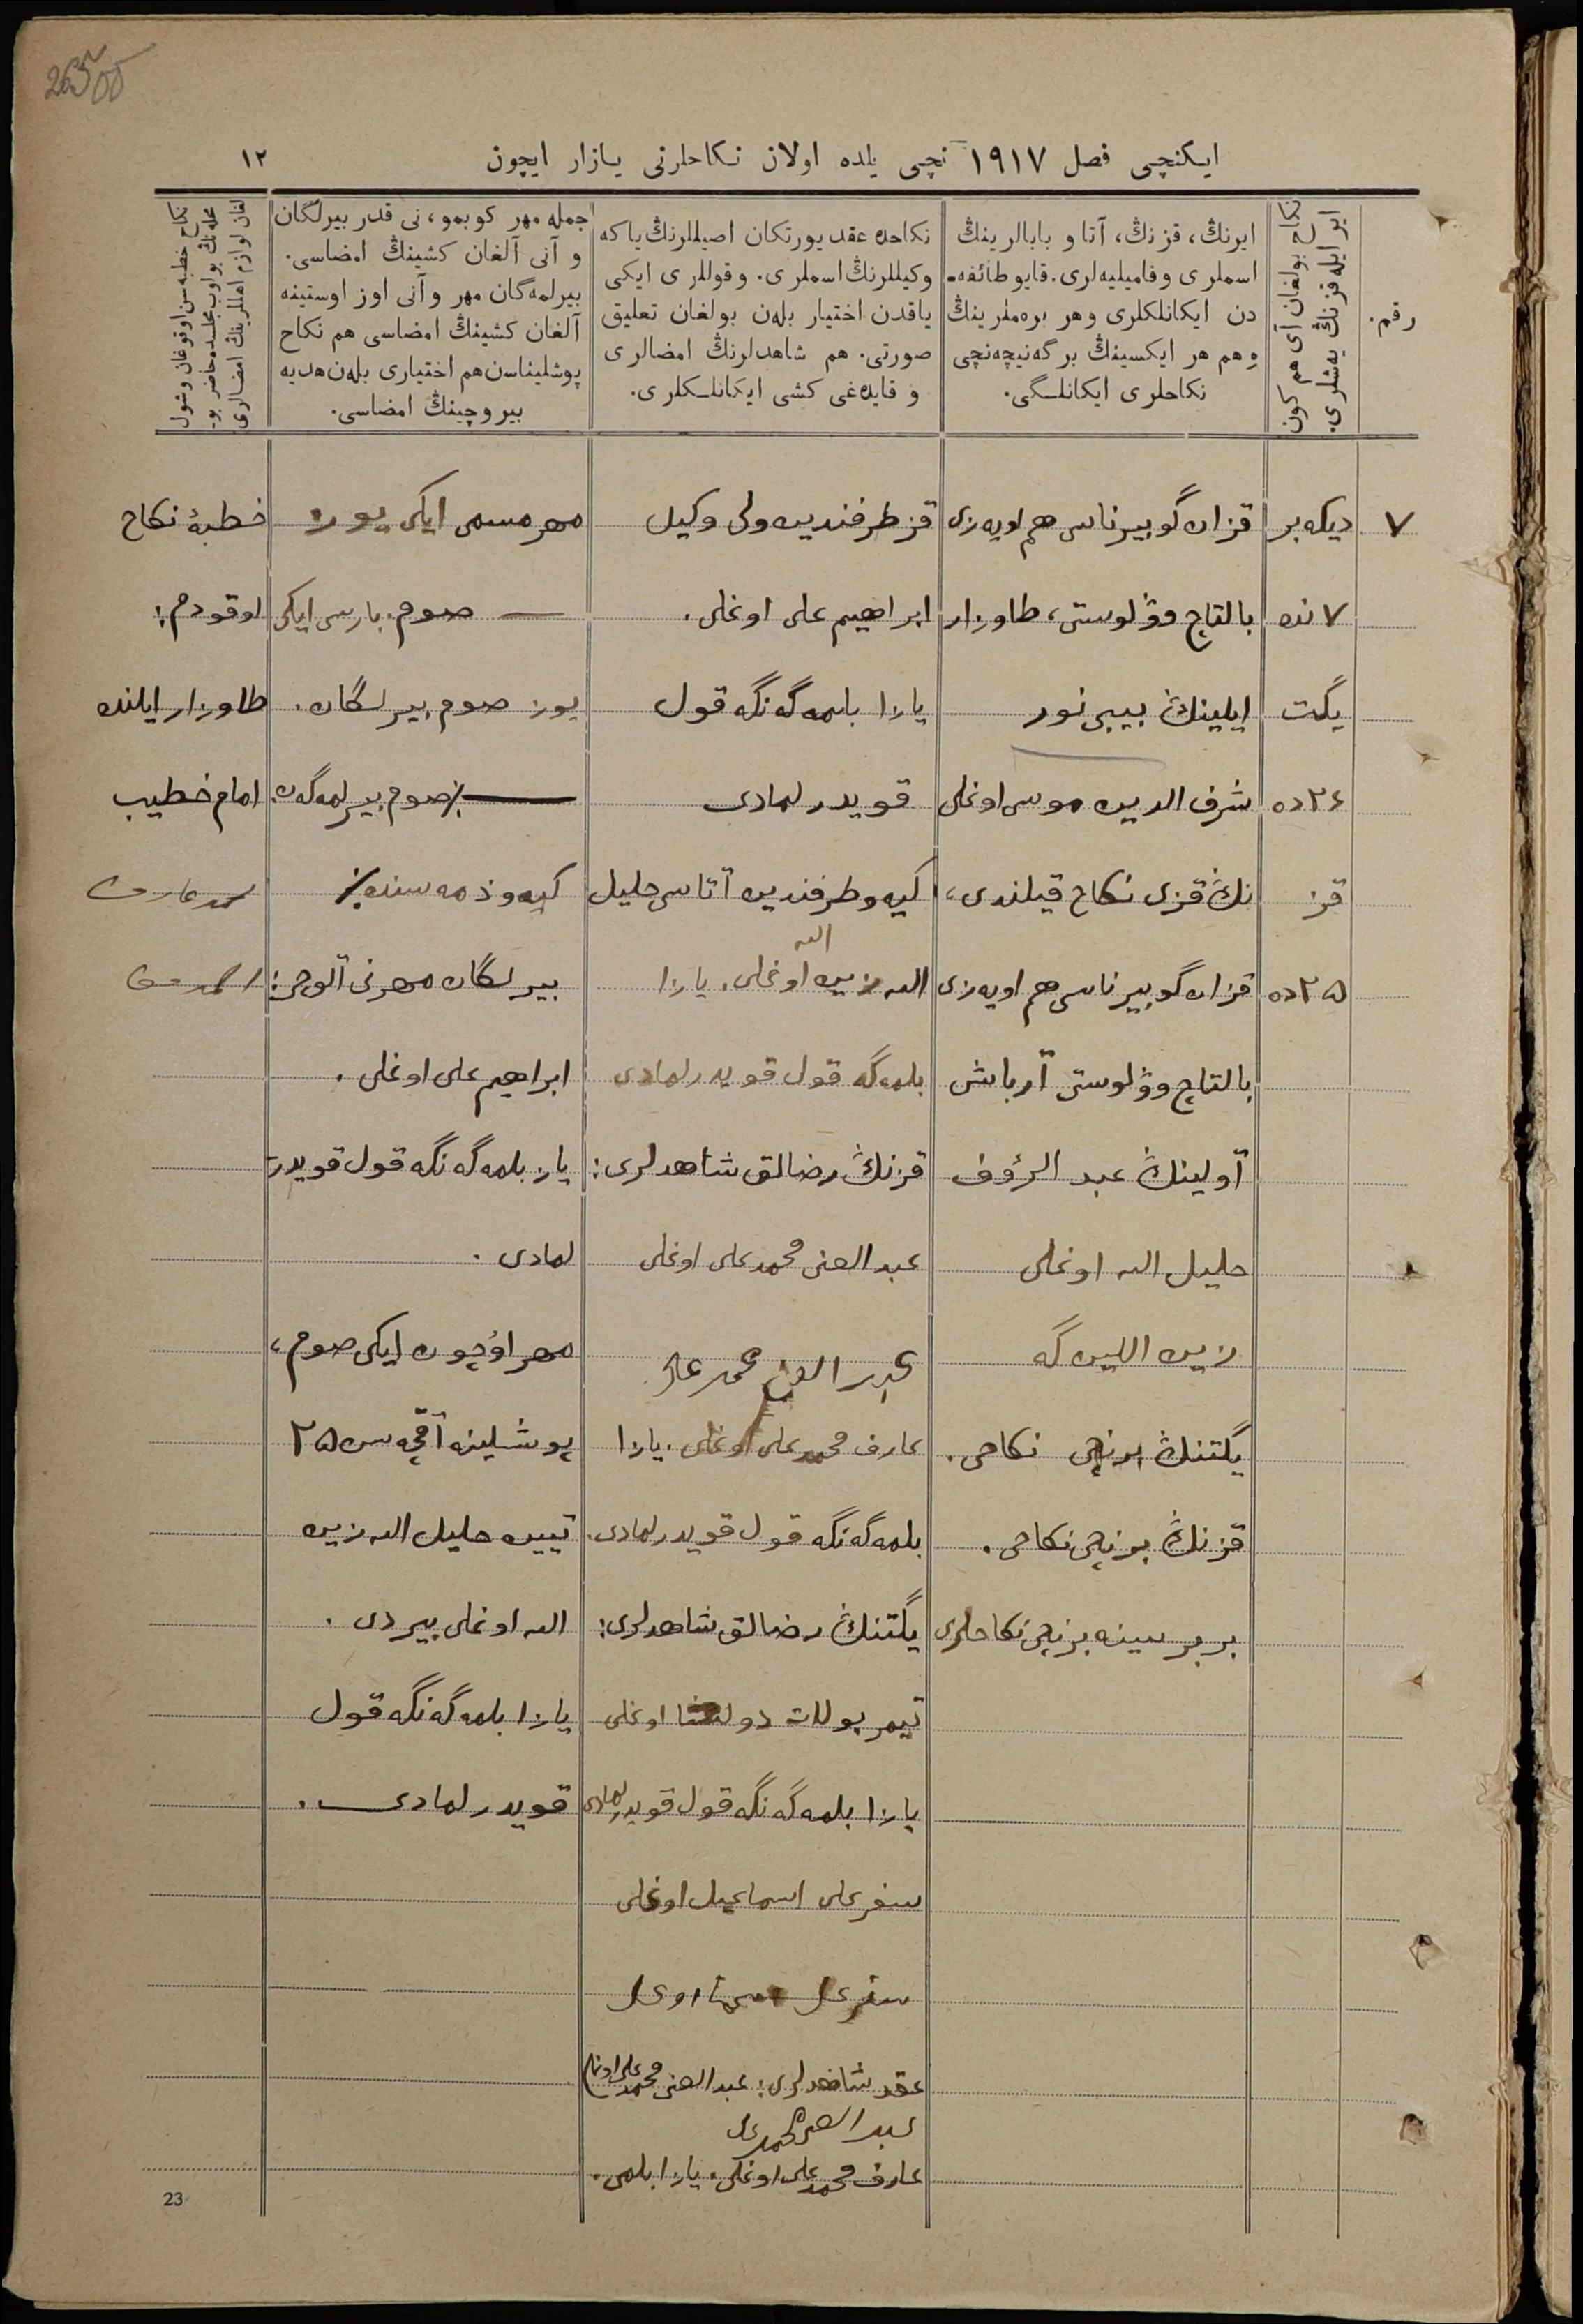 26500
ایکنچی فصل ١٩١٧ نچی یلده اولان نکاحلرنی یازار ایچون
١٢
رقم.
نکاح بولغان آی هم کون
ایر ایله قزنڭ یه‌شلری.
ایرنڭ، قزنڭ، آتا و بابالرینڭ
اسملری و فامیلیه‌لری. قایو طائفه‌ـ
دن ایکانلکلری وهر بره‌ملرینڭ
هم هر ایکسینڭ بر گه نیچه‌نچی
نکاحلری ایکانلـگی.
نکاحده عقد یورتکان اصیللرنڭ یا که
وکیللرنڭ اسملری. و قوللری ایکی
یاقدن اختیار بله‌ن بولغان تعلیق
صورتی. هم شاهدلرنڭ امضالری
و قایده‌غی کشی ایکانلـکلری.
جمله مهر کوبمو، نی قدر بیرلگان
و آنی آلغان کشینڭ امضاسی.
بیرلمه‌گان مهر و آنی اوز اوستینه
آلغان کشینڭ امضاسی هم نکاح
پوشلیناسن هم اختیاری بله‌ن هدیه
بیروچینڭ امضاسی.
نکاح خطبه‌سن اوقوغان و شول
محله‌نڭ بولوب مجلسده حاضر بو‌ـ
لغان لوازم اهللرینڭ امضالری
٧
دیکه‌بر
٧ نده
یگت
٢٤ ده
قز
٢٥ ده
قزان گوبیرناسی هم اویه‌زی
بالتاچ وۋلوستی، طاوزار
ایلینڭ بیبی نور
شرف الدین موسی اوغلی
نڭ قزی نکاح قیلندی،
قزان گوبیرناسی هم اویه‌زی
بالتاچ وۋلوستی آرباش
آولینڭ عبد الرؤف
جلیل الله اوغلی
زین اللین گه
یگتنڭ برنچی نکاحی.
قزنڭ برنچی نکاحی.
بر برسینه برنچی نکاحلری
قز طرفندین ولی وکیل
ابراهیم علی اوغلی.
یازا بلمه‌گه‌نگه قول
قویدرلمادی
کیه‌و طرفندین آتاسی جلیل
الله
الله زین اوغلی. یازا
بلمه‌گه قول قویدرلمادی
قزنڭ رضالق شاهدلری:
عبد الغنی محمد علی اوغلی
عبد الغنی محمد علی
عارف محمد علی اوغلی. یازا
بلمه‌گه‌نگه قول قویدرلمادی.
یگتنڭ رضالق شاهدلری:
تیمر بولات دولتشا اوغلی
یازا بلمه‌گه‌نگه قول قویدرلمادی
سفر علی اسماعیل اوغلی
عقد شاهدلری: عبد الغنی محمد علی اوغلی
عارف محمد علی اوغلی. یازا بلمی.
مهر مسمی ایکی یوز
صوم. بارسی ایکی
یوز صوم بیرلگان.
٪ صوم بیرلمه‌گه‌ن
کیه‌و ذمه‌سنده ٪
بیرلگان مهرنی آلوچی:
ابراهیم علی اوغلی.
یاز بلمه‌گه‌نگه قول قویدر
لمادی.
مهر اۆچون ایکی صوم،
پوشلینه آقچه‌سن ٢٥
تیین جلیل الله زین
الله اوغلی بیردی.
یازا بلمه‌گه‌نگه قول
قویدرلمادی.
خطبهٔ نکاح
اوقودم:
طاوزار ایلنده
امام خطیب
23